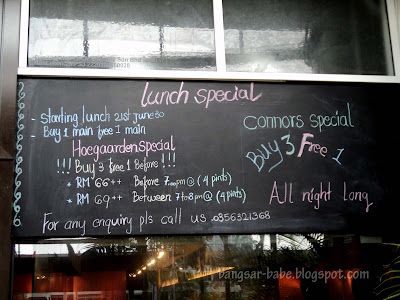 Lunch special
- Starting lunch 21st june 80
- Buy 1 main free 1 main
Hoegaarden special
!!! Buy 3 free 1 Before !!!
* RM 66++ Before 7:00pm @ (4 pints)
* RM 69++ Between 7to8pm @ (4 pints)
For any enquiry pls call us 0356321368
Connors special
Buy 3 Free 1
All night long
bangsar-babe.blogspot.com